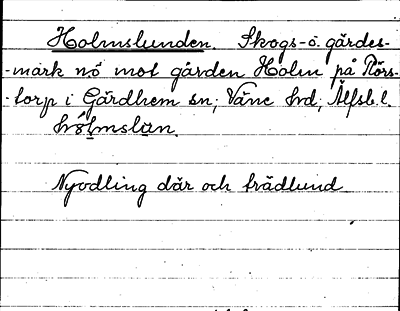 Holmslunden. Skogs- o. gärdes-
-mark nö mot gården Holm på Rörs-
-torp i Gärdhem sn; Väne hrd; Älfsb. l.
Nyodling där och trädlund